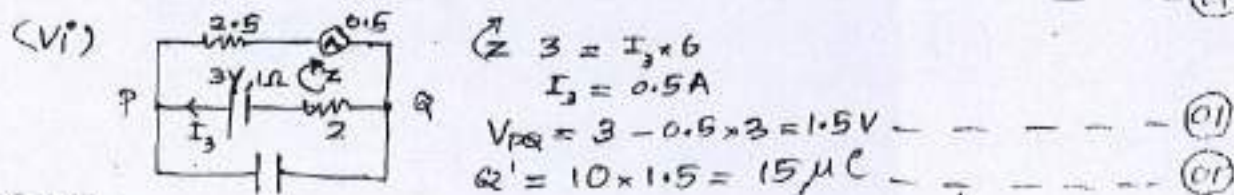 (01)
(vi) 2.5 A 0.5
3V, 1Ω Z
P Q
I₃ 2
Z 3 = I₃ × 6
I₃ = 0.5 A
V_PQ = 3 - 0.5 × 3 = 1.5 V - - - - (01)
Q' = 10 × 1.5 = 15 μC - - - - (01)